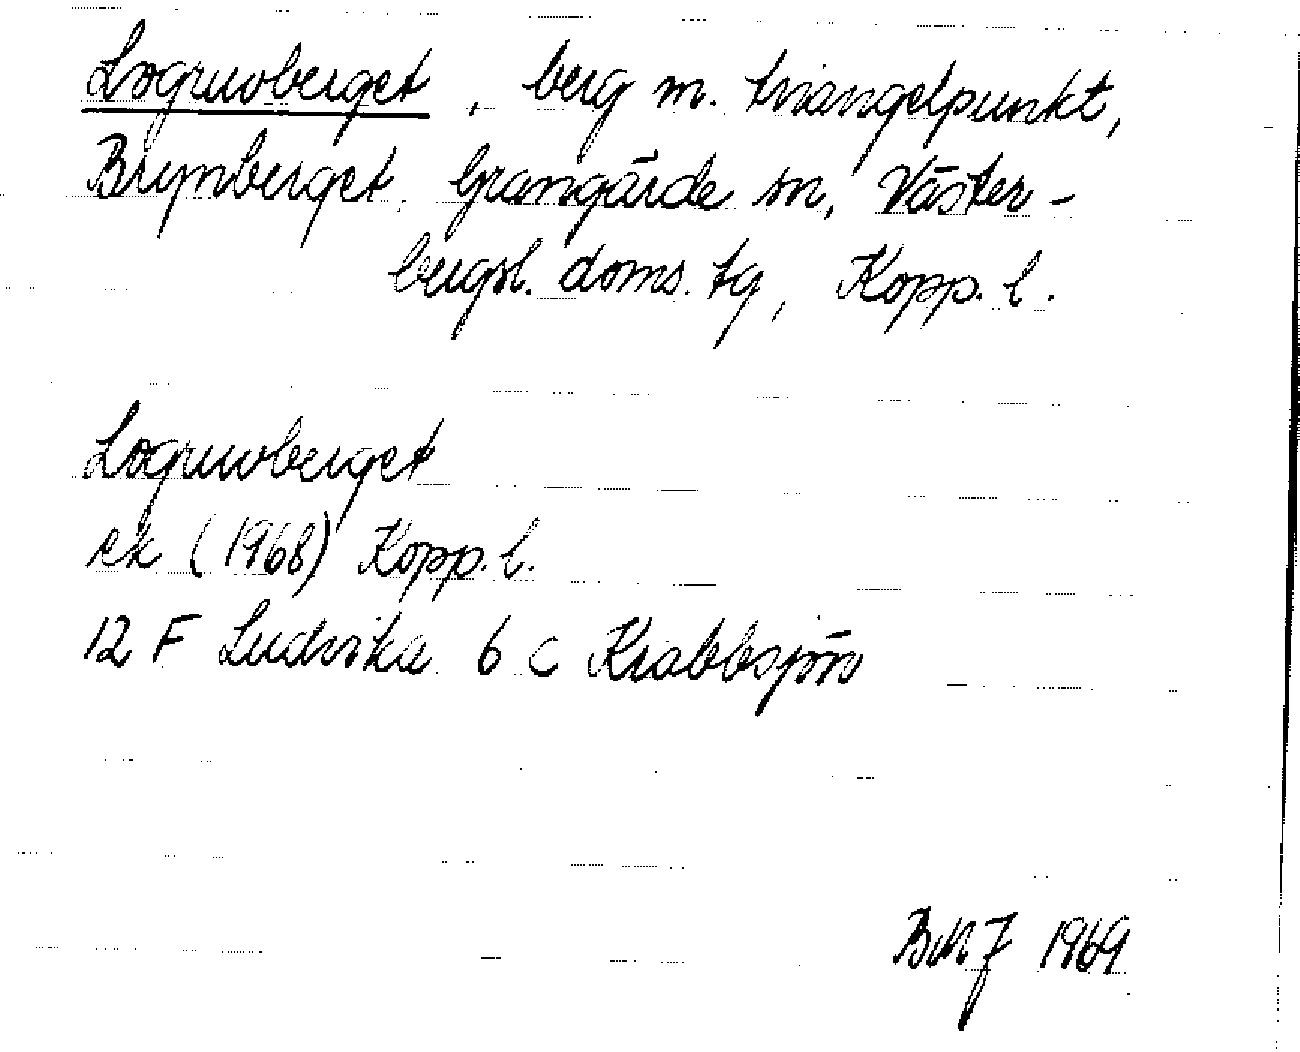 Logruvberget, berg m. triangelpunkt,
Brynberget, Grangärde sn, Väster-
bergsl. doms. tg, Kopp. l.
Logruvberget
ek (1968) Kopp. l.
12 F Ludvika 6 c Krabbsjön
1969